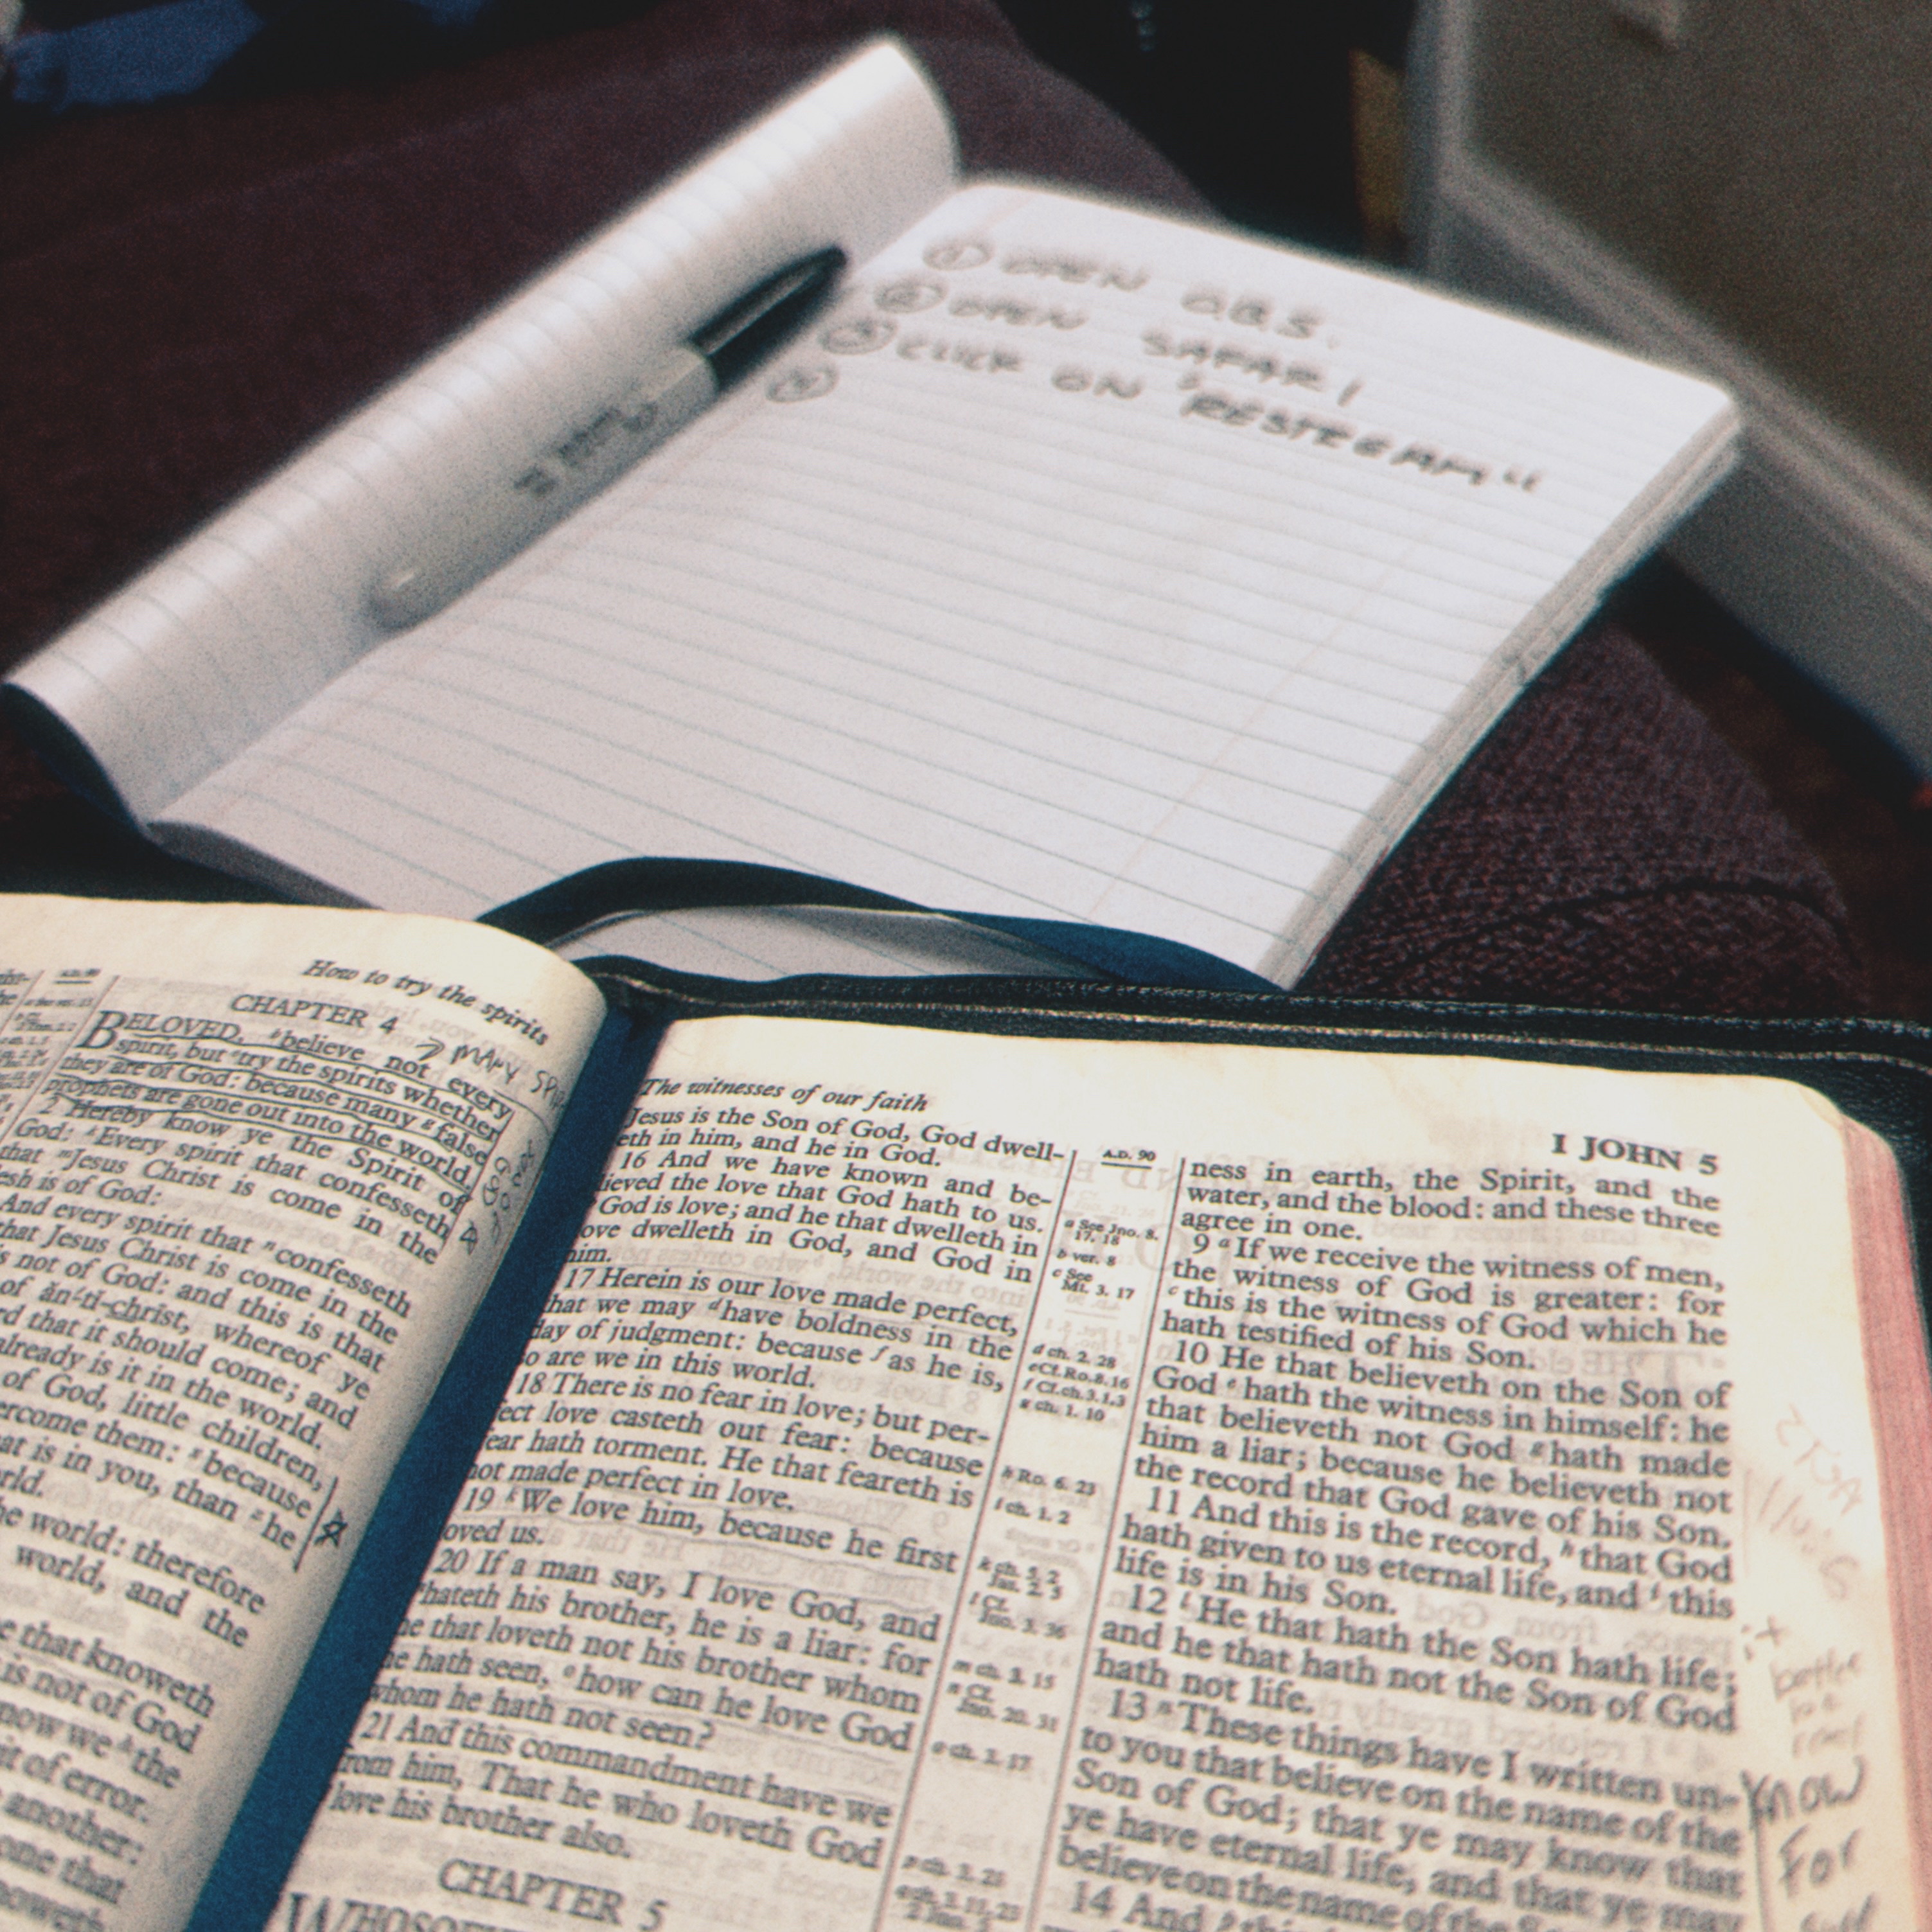 ① OPEN O.B.S.
② OPEN SAFARI
③ CLICK ON "RESTREAM"
④
How to try the spirits
CHAPTER 4
BELOVED, believe not every
spirit, but try the spirits whether
they are of God: because many false
prophets are gone out into the world.
2 Hereby know ye the Spirit of
God: Every spirit that confesseth
that Jesus Christ is come in the
esh is of God:
And every spirit that confesseth
that Jesus Christ is come in the
s not of God: and this is that
of ăn´tĭ-christ, whereof ye
rd that it should come; and
already is it in the world.
of God, little children,
ercome them: because
at is in you, than he
rld.
he world: therefore
world, and the
e that knoweth
is not of God
now we the
it of error.
another:
one that
noweth
→ MANY SPI
The witnesses of our faith
Jesus is the Son of God, God dwell-
eth in him, and he in God.
16 And we have known and be-
lieved the love that God hath to us.
God is love; and he that dwelleth in
love dwelleth in God, and God in
him.
17 Herein is our love made perfect,
that we may d have boldness in the
day of judgment: because f as he is,
so are we in this world.
18 There is no fear in love; but per-
fect love casteth out fear: because
fear hath torment. He that feareth is
not made perfect in love.
19 k We love him, because he first
loved us.
20 If a man say, I love God, and
hateth his brother, he is a liar: for
he that loveth not his brother whom
he hath seen, o how can he love God
whom he hath not seen?
21 And this commandment have we
from him, That he who loveth God
love his brother also.
CHAPTER 5
A.D. 90
a See Jno. 8.
17, 18
b ver. 8
c See
Mt. 3. 17
d ch. 2. 28
e Cf. Ro. 8. 16
f Cf. ch. 3. 1, 3
g ch. 1. 10
h Ro. 6. 23
i ch. 1. 2
k ch. 5. 2
l Cf.
Jno. 3. 36
m ch. 3. 15
n Cf.
Jno. 20. 31
o ch. 3. 17
I JOHN 5
ness in earth, the Spirit, and the
water, and the blood: and these three
agree in one.
9 a If we receive the witness of men,
the witness of God is greater: for
c this is the witness of God which he
hath testified of his Son.
10 He that believeth on the Son of
God e hath the witness in himself: he
that believeth not God g hath made
him a liar; because he believeth not
the record that God gave of his Son.
11 And this is the record, h that God
hath given to us eternal life, and i this
life is in his Son.
12 l He that hath the Son hath life;
and he that hath not the Son of God
hath not life.
13 n These things have I written un-
to you that believe on the name of the
Son of God; that ye may know that
ye have eternal life, and that ye may
believe on the name of the
14 And
better
be
real
Know
For